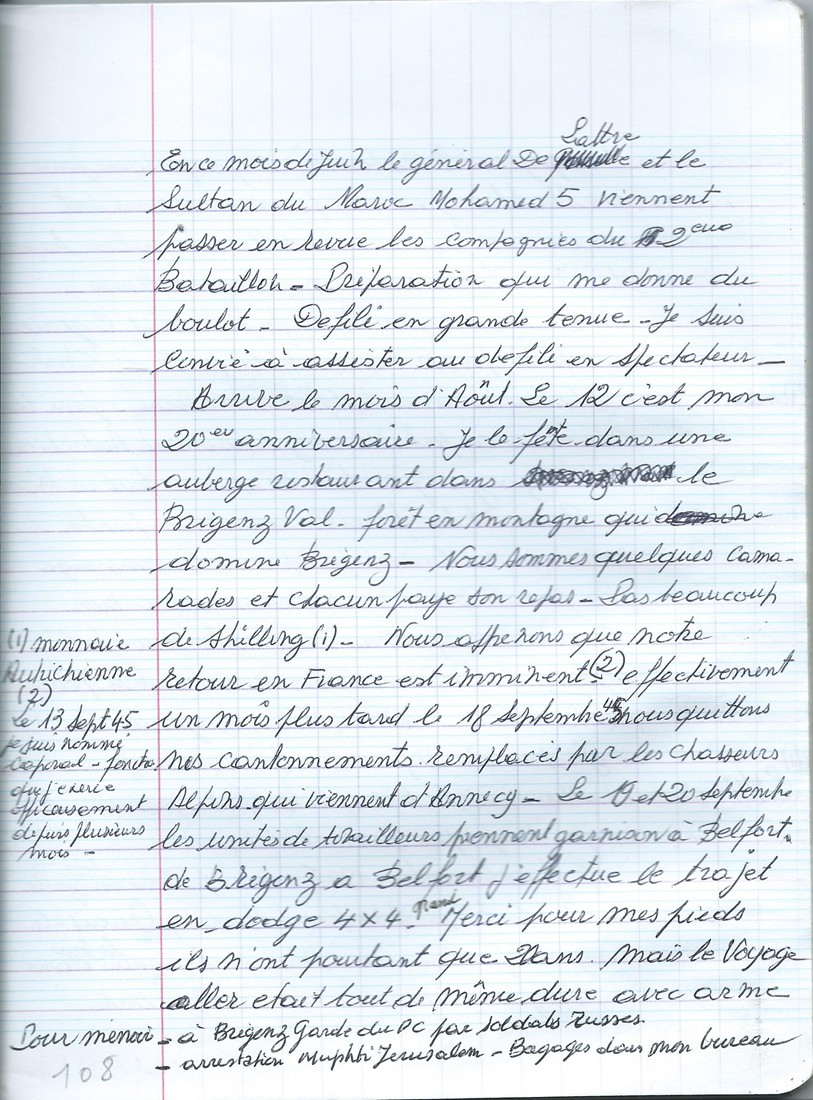 Lattre
En ce mois de Juin le général De et le
Sultan du Maroc Mohamed 5 viennent
passer en revue les compagnies du 2eme
Bataillon - Préparation qui me donne du
boulot - Defilé en grande tenue - Je suis
convié à assister au defilé en spectateur -
Arrive le mois d'Août. Le 12 c'est mon
20eme anniversaire - Je le fête dans une
auberge restaurant dans le
Brigenz Val - forêt en montagne qui
domine Brégenz - Nous sommes quelques cama-
rades et chacun paye son repas - Pas beaucoup
de Shilling (1) - Nous apprenons que notre
retour en France est imminent (2) effectivement
un mois plus tard le 18 Septembre 45 nous quittons
nos cantonnements remplacés par les Chasseurs
Alpins qui viennent d'Annecy - Le 19 et 20 Septembre
les unités de tirailleurs prennent garnison à Belfort.
de Brégenz a Belfort j'effectue le trajet
en dodge 4x4. grand Merci pour mes pieds
ils n'ont pourtant que 20ans. Mais le Voyage
aller etait tout de même dure avec arme
(1) monnaie
Autrichienne
(2)
Le 13 Sept 45
je suis nommé
Caporal - fonction
que j'exerce
officieusement
depuis plusieurs
mois -
Pour mémoire - à Brégenz Garde du PC par soldats Russes.
- arrestation Muphti Jerusalem - Bagages dans mon bureau
108